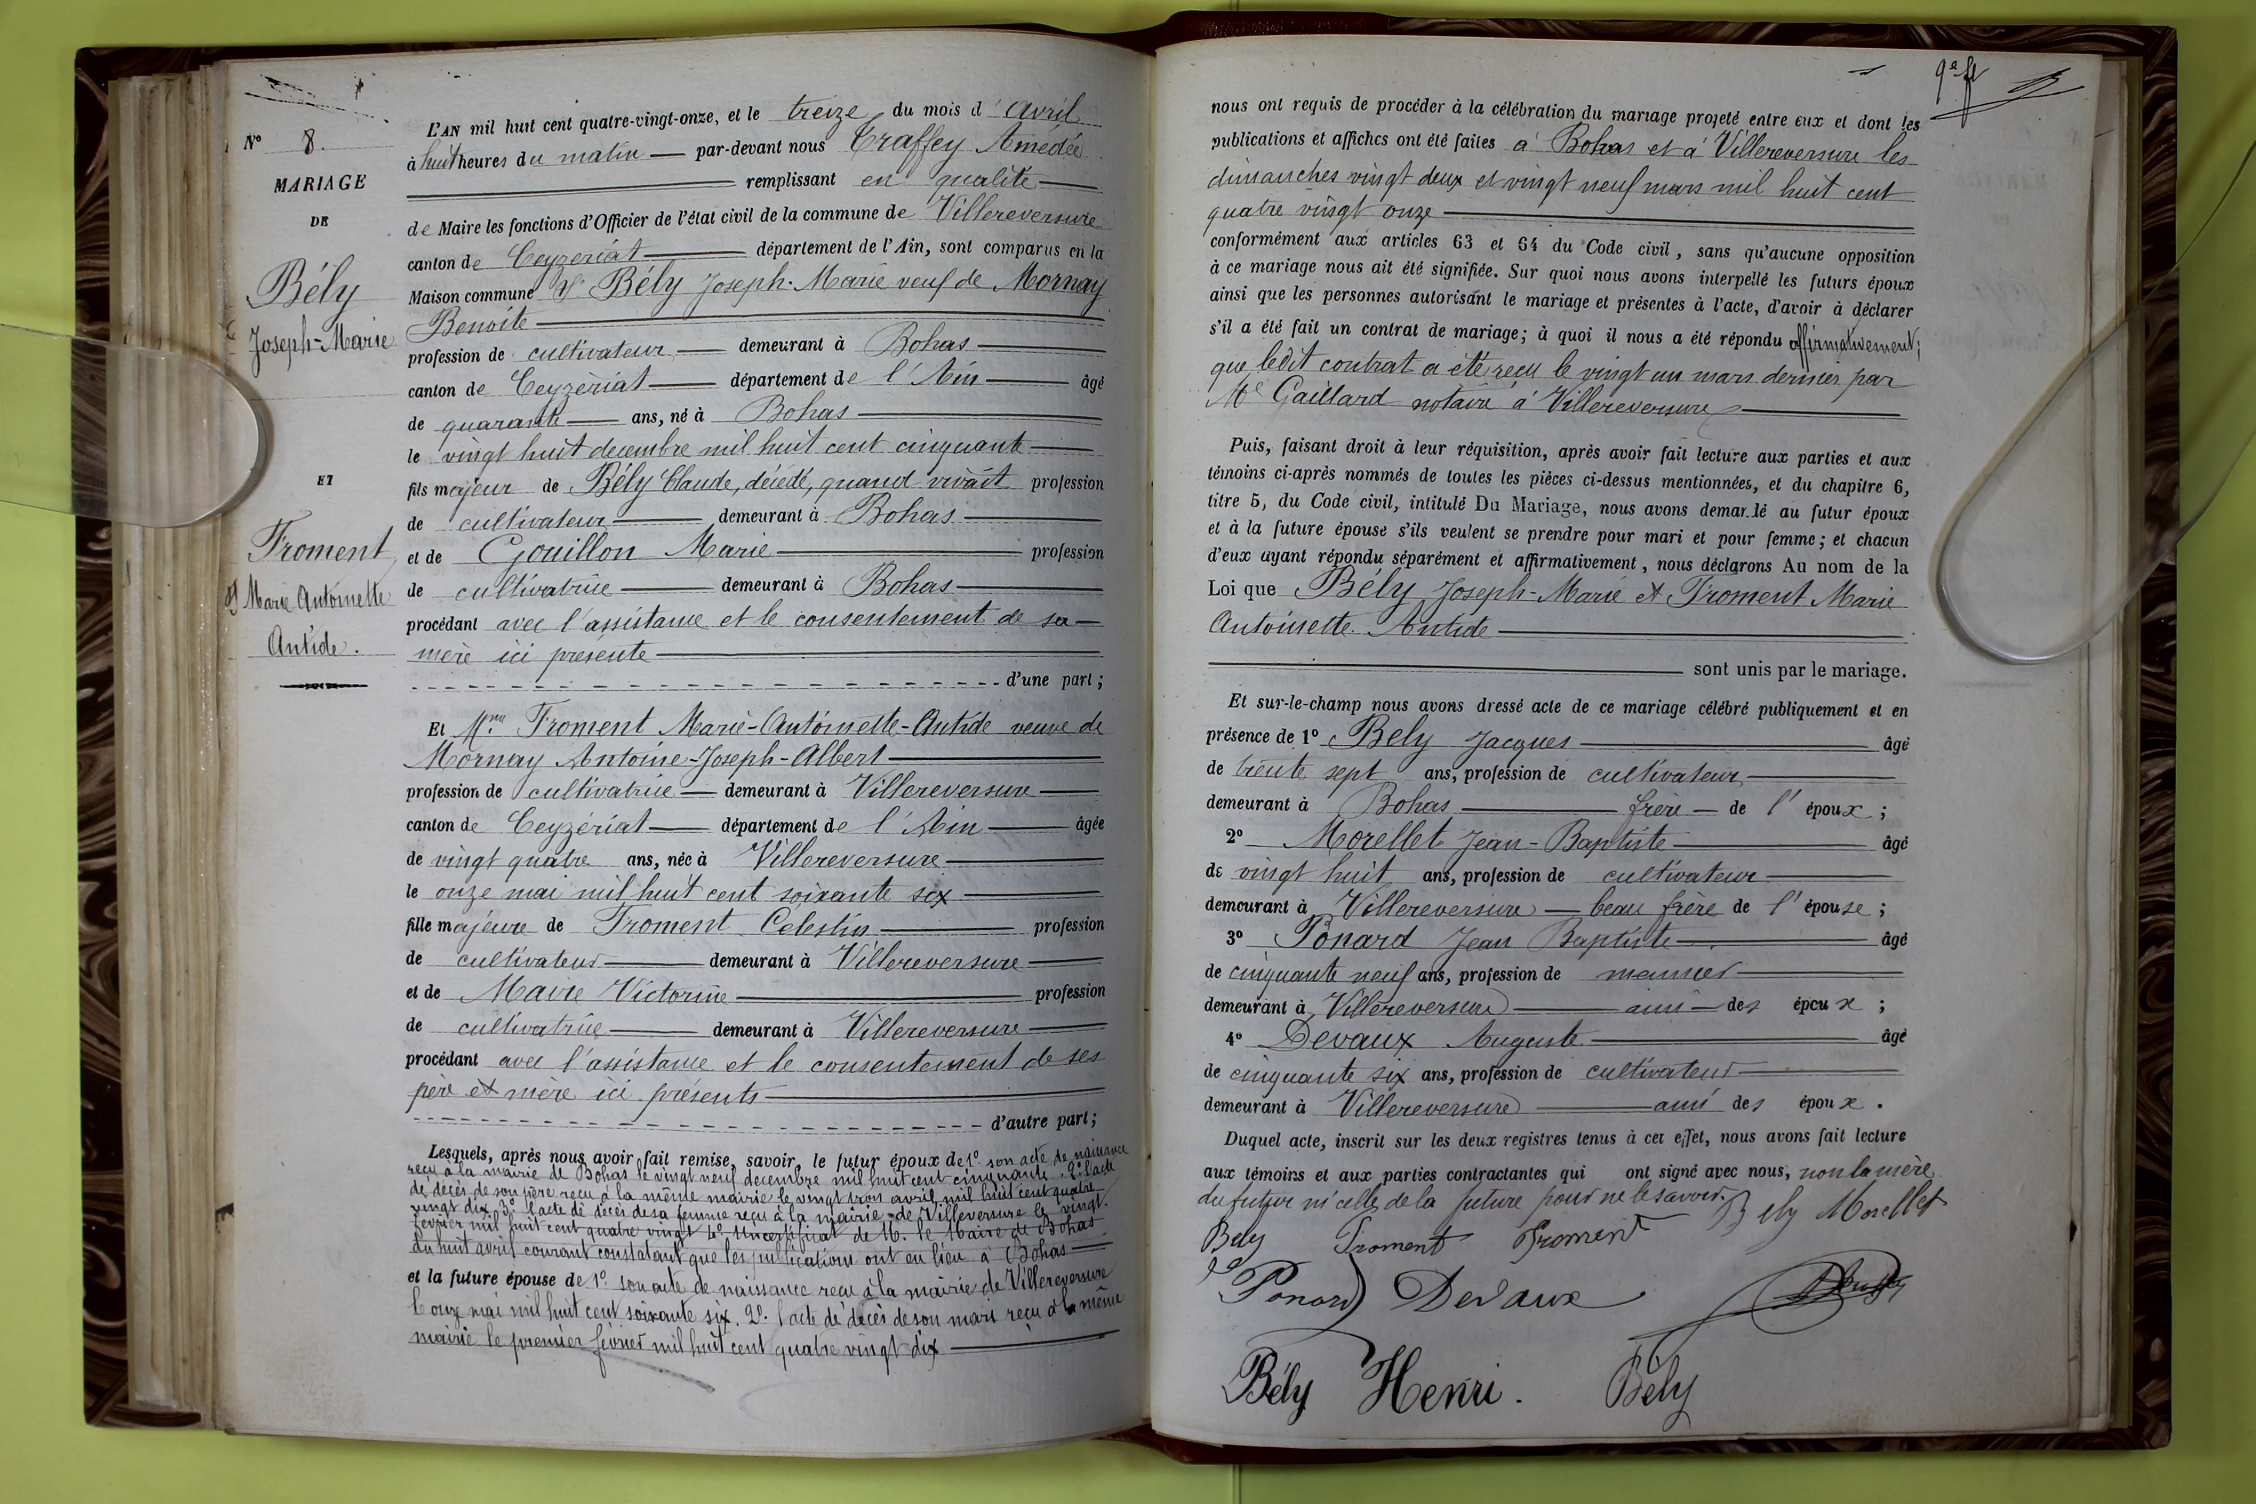 N° 8.
MARIAGE
DE
Bély
Joseph-Marie
ET
Froment
Marie Antoinette
Antide.
L'AN mil huit cent quatre-vingt-onze, et le treize du mois d'Avril
à huit heures du matin par-devant nous Traffey Amédée
remplissant en qualité
de Maire les fonctions d'Officier de l'état civil de la commune de Villereversure
canton de Ceyzériat département de l'Ain, sont comparus en la
Maison commune Sr Bély Joseph-Marie veuf de Mornay
Benoite
profession de cultivateur demeurant à Bohas
canton de Ceyzériat département de l'Ain âgé
de quarante ans, né à Bohas
le vingt huit decembre mil huit cent cinquante
fils majeur de Bély Claude, décédé, quand vivait profession
de cultivateur demeurant à Bohas
et de Gouillon Marie profession
de cultivatrice demeurant à Bohas
procédant avec l'assistance et le consentement de sa
mère ici presente
d'une part;
Et Mme Froment Marie-Antoinette-Antide veuve de
Mornay Antoine-Joseph-Albert
profession de cultivatrice demeurant à Villereversure
canton de Ceyzériat département de l'Ain âgée
de vingt quatre ans, née à Villereversure
le onze mai mil huit cent soixante six
fille majeure de Froment Celestin profession
de cultivateur demeurant à Villereversure
et de Mavre Victorine profession
de cultivatrice demeurant à Villereversure
procédant avec l'assistance et le consentement de ses
père et mère ici présents
d'autre part;
Lesquels, après nous avoir fait remise, savoir, le futur époux de 1° son acte de naissance
reçu à la mairie de Bohas le vingt neuf decembre mil huit cent cinquante. 2° l'acte
de décès de son père reçu à la même mairie le vingt trois avril mil huit cent quatre
vingt dix, 3° l'acte de décès de sa femme reçu à la mairie de Villereversure le vingt
fevrier mil huit cent quatre vingt 4° un certificat de M. le Maire de Bohas
du huit avril courant constatant que les publications ont eu lieu à Bohas
et la future épouse de 1° son acte de naissance reçu à la mairie de Villereversure
le onze mai mil huit cent soixante six. 2° l'acte de décès de son mari reçu à la même
mairie le premier février mil huit cent quatre vingt dix
9e ft
nous ont requis de procéder à la célébration du mariage projeté entre eux et dont les
publications et affiches ont été faites à Bohas et à Villereversure les
dimanches vingt deux et vingt neuf mars mil huit cent
quatre vingt onze
conformément aux articles 63 et 64 du Code civil, sans qu'aucune opposition
à ce mariage nous ait été signifiée. Sur quoi nous avons interpellé les futurs époux
ainsi que les personnes autorisant le mariage et présentes à l'acte, d'avoir à déclarer
s'il a été fait un contrat de mariage; à quoi il nous a été répondu affirmativement;
que ledit contrat a été reçu le vingt un mars dernier par
Me Gaillard notaire à Villereversure
Puis, faisant droit à leur réquisition, après avoir fait lecture aux parties et aux
témoins ci-après nommés de toutes les pièces ci-dessus mentionnées, et du chapitre 6,
titre 5, du Code civil, intitulé Du Mariage, nous avons demandé au futur époux
et à la future épouse s'ils veulent se prendre pour mari et pour femme; et chacun
d'eux ayant répondu séparément et affirmativement, nous déclarons Au nom de la
Loi que Bély Joseph-Marie et Froment Marie
Antoinette Antide
sont unis par le mariage.
Et sur-le-champ nous avons dressé acte de ce mariage célébré publiquement et en
présence de 1° Bely Jacques âgé
de trente sept ans, profession de cultivateur
demeurant à Bohas frère de l'époux;
2° Morellet Jean-Baptiste âgé
de vingt huit ans, profession de cultivateur
demeurant à Villereversure beau frère de l'épouse;
3° Ponard Jean Baptiste âgé
de cinquante neuf ans, profession de meunier
demeurant à Villereversure ami des époux;
4° Devaux Auguste âgé
de cinquante six ans, profession de cultivateur
demeurant à Villereversure ami des époux.
Duquel acte, inscrit sur les deux registres tenus à cet effet, nous avons fait lecture
aux témoins et aux parties contractantes qui ont signé avec nous, non la mère
du futur ni celle de la future pour ne le savoir. Bely Morellet
Bely Froment Froment
Ponard Devaux
Bély Henri. Bély